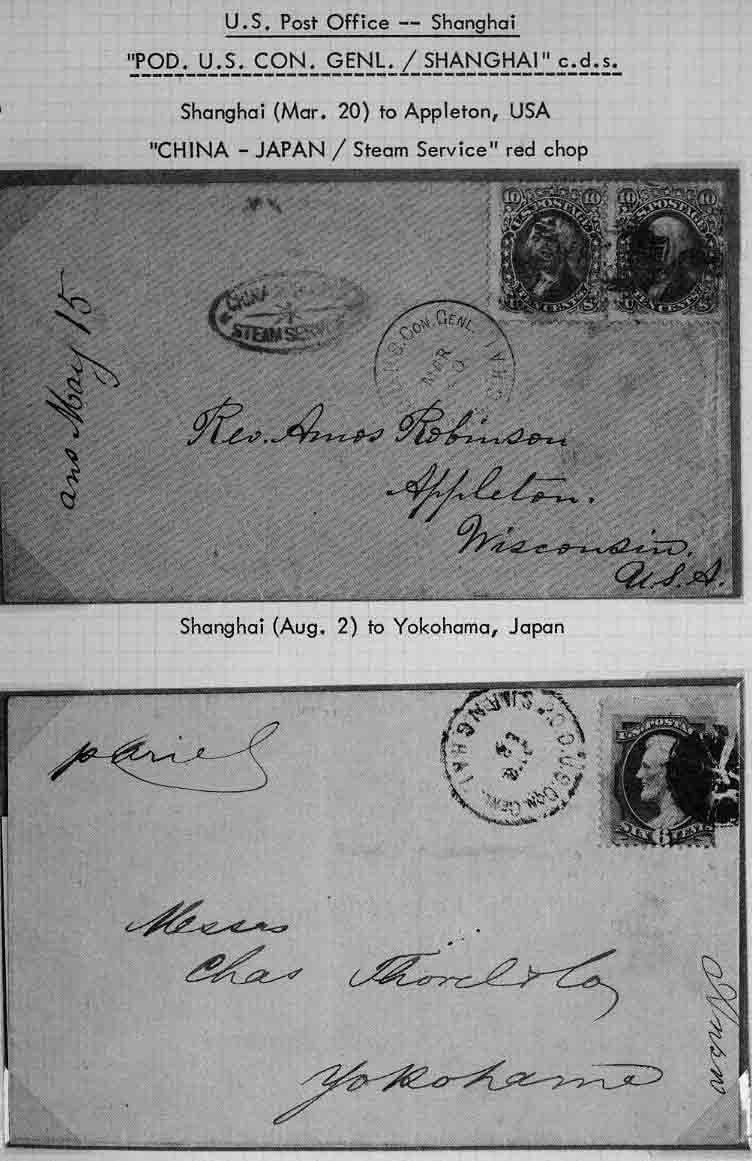 U.S. Post Office -- Shanghai
"POD. U.S. CON. GENL. / SHANGHAI" c.d.s.
Shanghai (Mar. 20) to Appleton, USA
"CHINA - JAPAN / Steam Service" red chop
10 10
U.S. POSTAGE
TEN CENTS
10 10
U.S. POSTAGE
TEN CENTS
CHINA
STEAM SERVICE
U.S. CON. GENL.
MAR
ans May 15
Rev. Amos Robinson
Appleton.
Wisconsin.
U.S.A.
Shanghai (Aug. 2) to Yokohama, Japan
P.O.D. U.S. CON. GENL. SHANGHAI
Messrs
Chas Thorel & Co
Yokohama